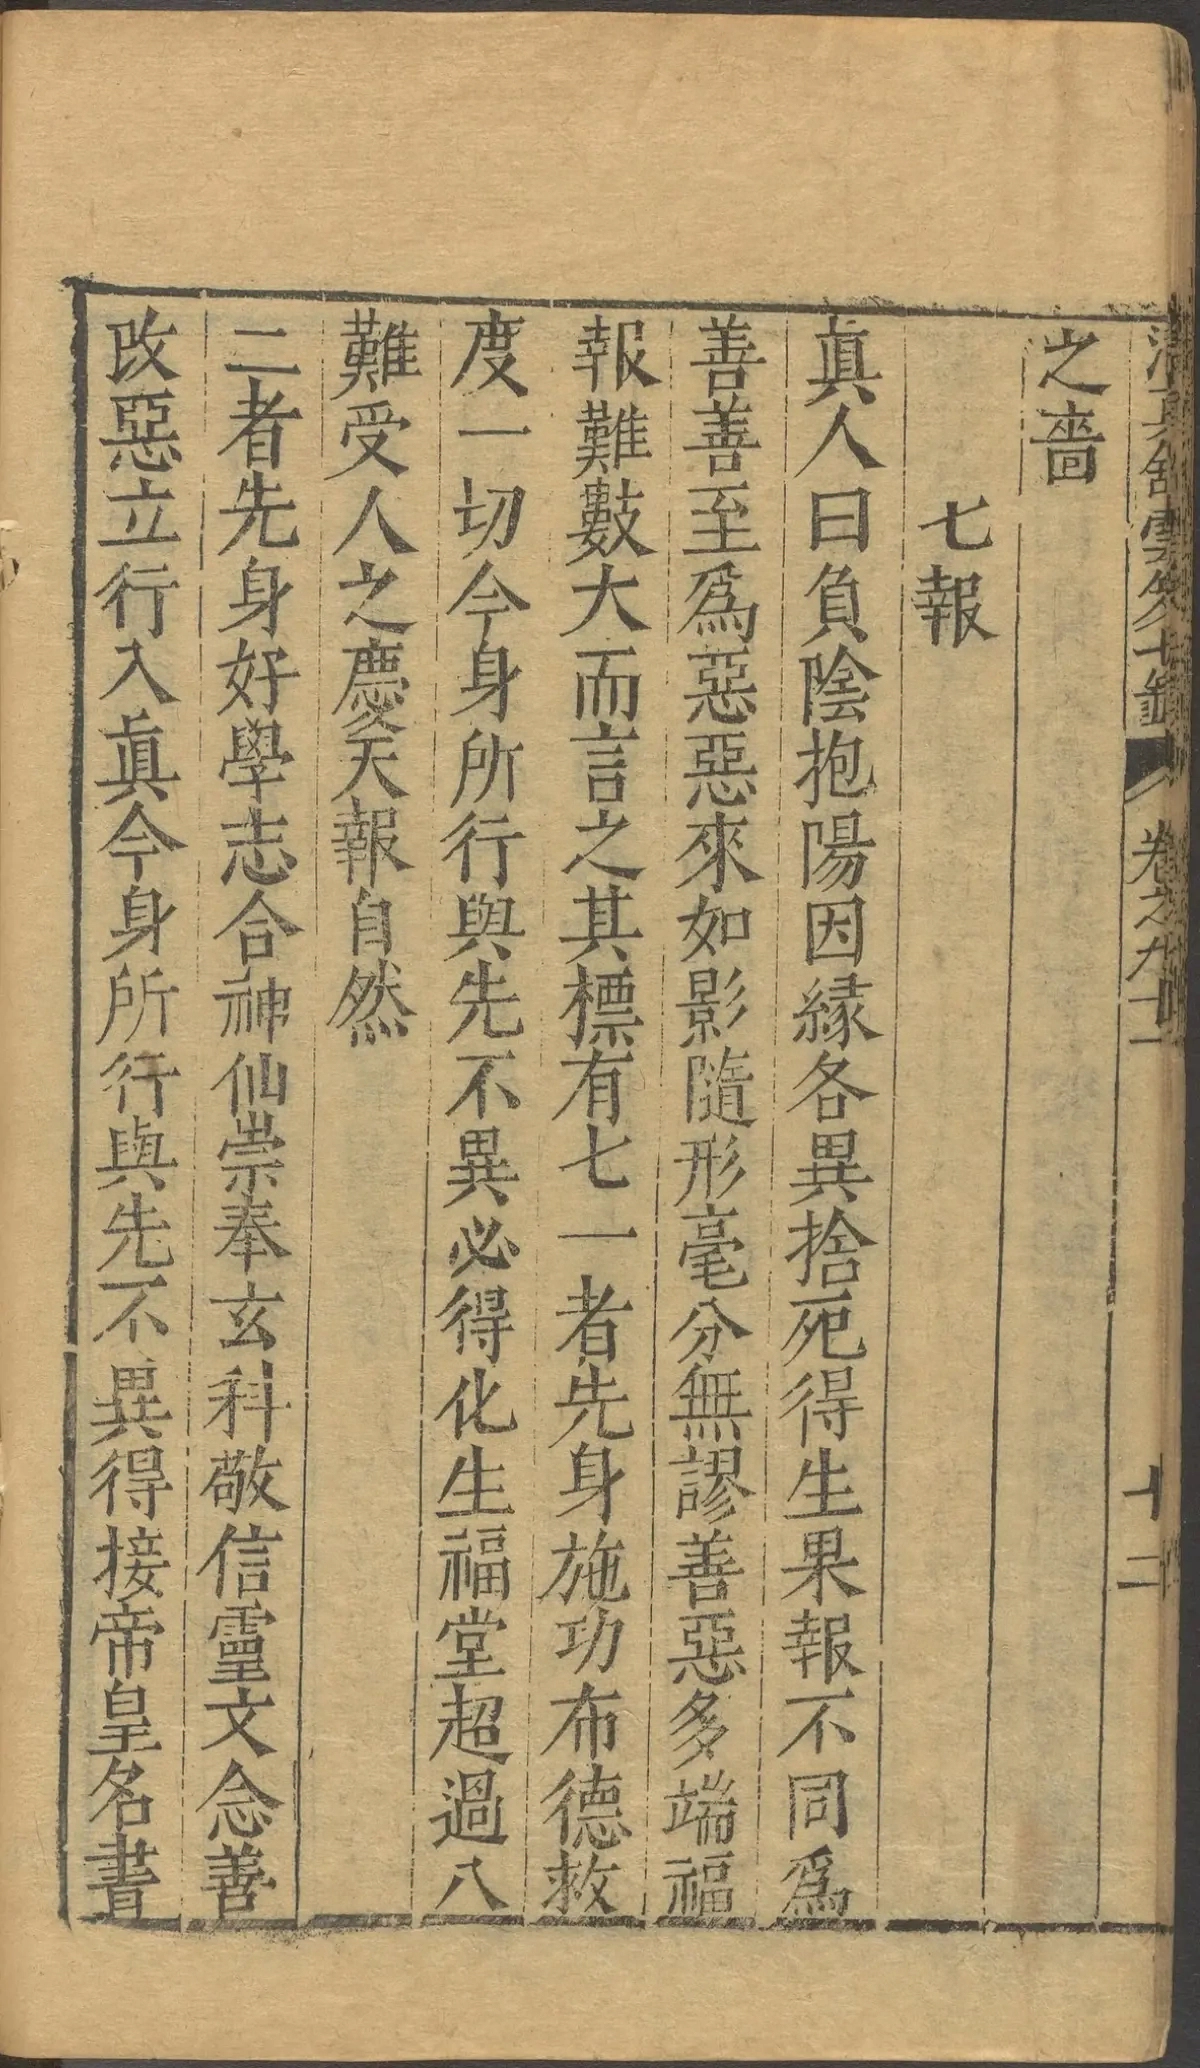 清真舘雲笈七籤 卷之九十一 十二
之嗇
七報
眞人曰負陰抱陽因緣各異捨死得生果報不同爲
善善至爲惡惡來如影隨形毫分無謬善惡多端福
報難數大而言之其標有七一者先身施功布德救
度一切今身所行與先不異必得化生福堂超過八
難受人之慶天報自然
二者先身好學志合神仙崇奉玄科敬信靈文念善
改惡立行入眞今身所行與先不異得接帝皇名書